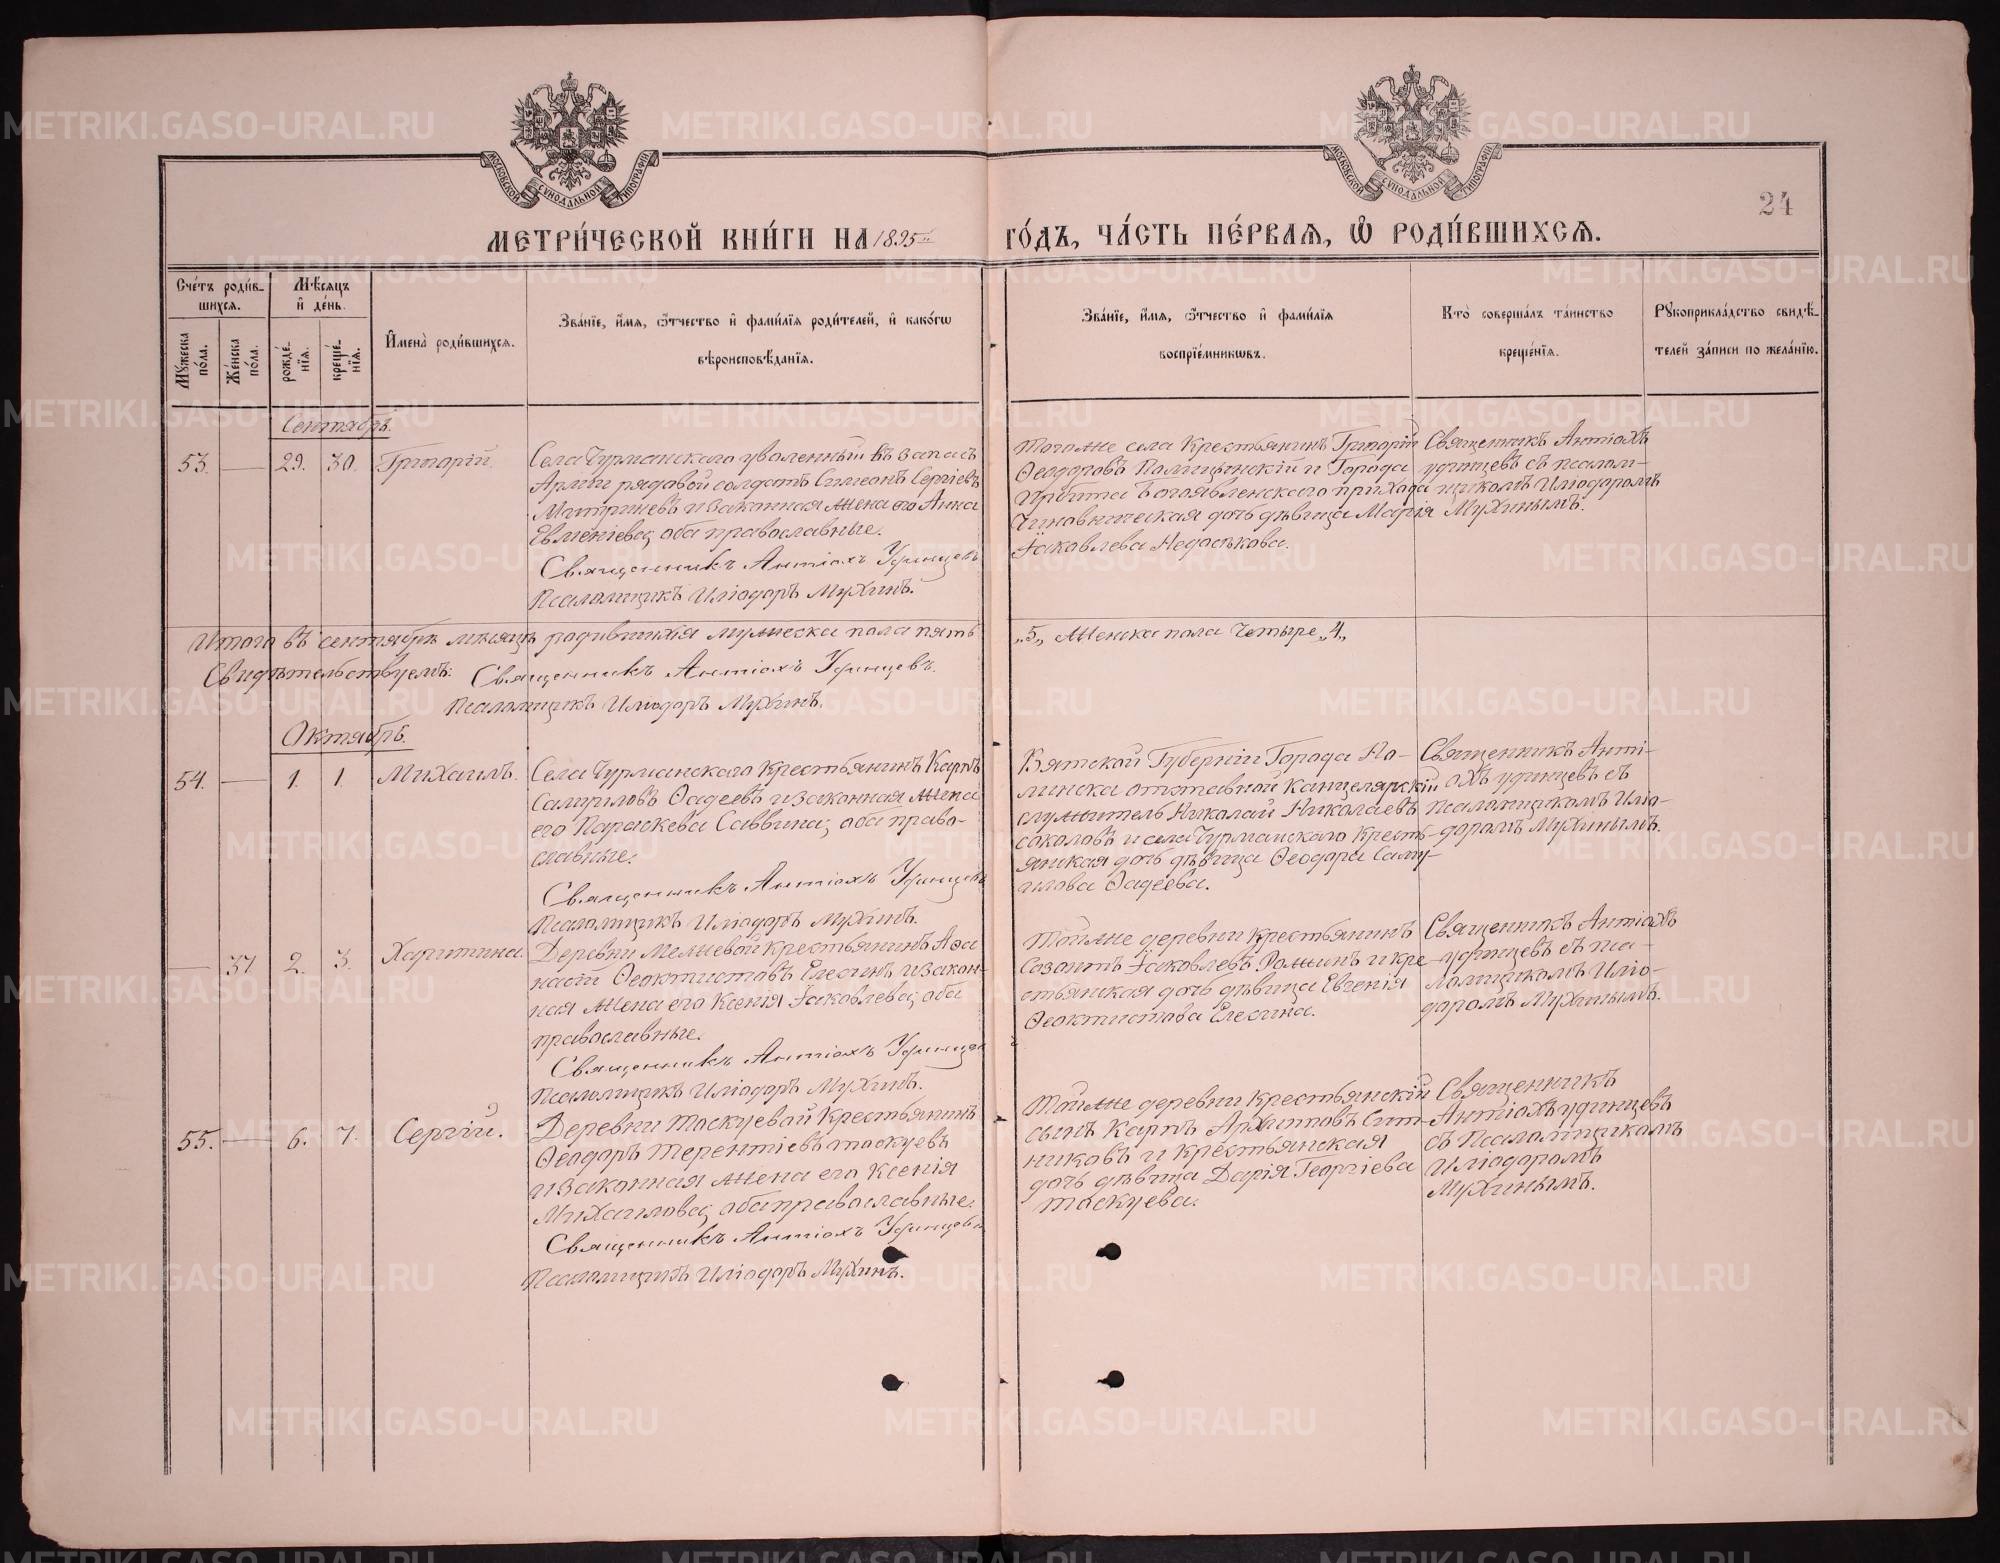 24
МОСКОВСКОЙ СѴНОДАЛЬНОЙ ТИПОГРАФІИ
МОСКОВСКОЙ СѴНОДАЛЬНОЙ ТИПОГРАФІИ
МЕТРИ́ЧЕСКОЙ КНИ́ГИ НА 1895 ГО́ДЪ, ЧА́СТЬ ПЕ́РВАѦ, Ѡ҆ РОДИ́ВШИХСѦ.
Сче́тъ роди́в-
шихсѧ.
Мꙋ́жеска по́ла.
Же́нска по́ла.
Мѣ́сѧцъ и҆ де́нь.
рожде́-нїѧ.
креще́-нїѧ.
И҆мена̀ роди́вшихсѧ.
Зва́нїе, и҆́мѧ, ѻ҆́тчество и҆ фами́лїѧ роди́телей, и҆ како́гѡ
вѣроисповѣ́данїѧ.
Зва́нїе, и҆́мѧ, ѻ҆́тчество и҆ фами́лїѧ
воспрїе́мникѡвъ.
Кто̀ соверша́лъ та́инство
креще́нїѧ.
Рꙋкоприкла́дство свидѣ́-
телей за́писи по жела́нїю.
Сентябрь.
53. — 29. 30. Григорій.
Села Чурманскаго уволенный въ запасъ
Арміи рядовой солдатъ Симеонъ Сергіевъ
и законная жена его Анна
Евменіева; оба православные.
Священникъ Антіохъ Удинцевъ
Псаломщикъ Иліодоръ Мухинъ.
тогоже села Крестьянинъ Григорій
Ѳеодоровъ и Города
Ирбита Богоявленскаго прихода
Чиновническая дочь дѣвица Марія
Іаковлева
Священникъ Антіохъ
Удинцевъ съ псалом-
щикомъ Иліодоромъ
Мухинымъ.
Итого въ сентябрѣ мѣсяцѣ родившихся мужеска пола пять „5„ Женска пола Четыре „4„
Свидѣтельствуемъ: Священникъ Антіохъ Удинцевъ.
Псаломщикъ Иліодоръ Мухинъ.
Октябрь.
54. — 1. 1. Михаилъ.
Села Чурманскаго Крестьянинъ Карпъ
Самуиловъ Ѳадеевъ и законная жена
его Параскева Саввина; оба право-
славные.
Священникъ Антіохъ Удинцевъ
Псаломщикъ Иліодоръ Мухинъ.
Вятской Губерніи Города Но-
линска отставной Канцелярскій
служитель Николай Николаевъ
Соколовъ и села Чурманскаго Кресть-
янская дочь дѣвица Ѳеодора Саму-
илова Ѳадеева.
Священникъ Анті-
охъ Удинцевъ съ
Псаломщикомъ Иліо-
доромъ Мухинымъ.
— 37 2. 3. Харитина.
Деревни Мельневой крестьянинъ Аѳа
насій Ѳеоктистовъ Елесинъ и закон-
ная жена его Ксенія Іаковлева; оба
православные.
Священникъ Антіохъ Удинцевъ
Псаломщикъ Иліодоръ Мухинъ.
Тойже деревни Крестьянинъ
Созонтъ Іаковлевъ и кре-
стьянская дочь дѣвица Евгенія
Ѳеоктистова Елесина.
Священникъ Антіохъ
Удинцевъ съ пса-
ломщикомъ Иліо-
доромъ Мухинымъ.
55. — 6. 7. Сергій.
Деревни Таскуевой Крестьянинъ
Ѳеодоръ Терентіевъ Таскуевъ
и законная жена его Ксенія
Михаилова; оба православные.
Священникъ Антіохъ Удинцевъ
Псаломщикъ Иліодоръ Мухинъ.
Тойже деревни Крестьянскій
сынъ Карпъ Архиповъ Сит-
никовъ и Крестьянская
дочь дѣвица Дарія Георгіева
Таскуева.
Священникъ
Антіохъ Удинцевъ
съ Псаломщикомъ
Иліодоромъ
Мухинымъ.
METRIKI.GASO-URAL.RU